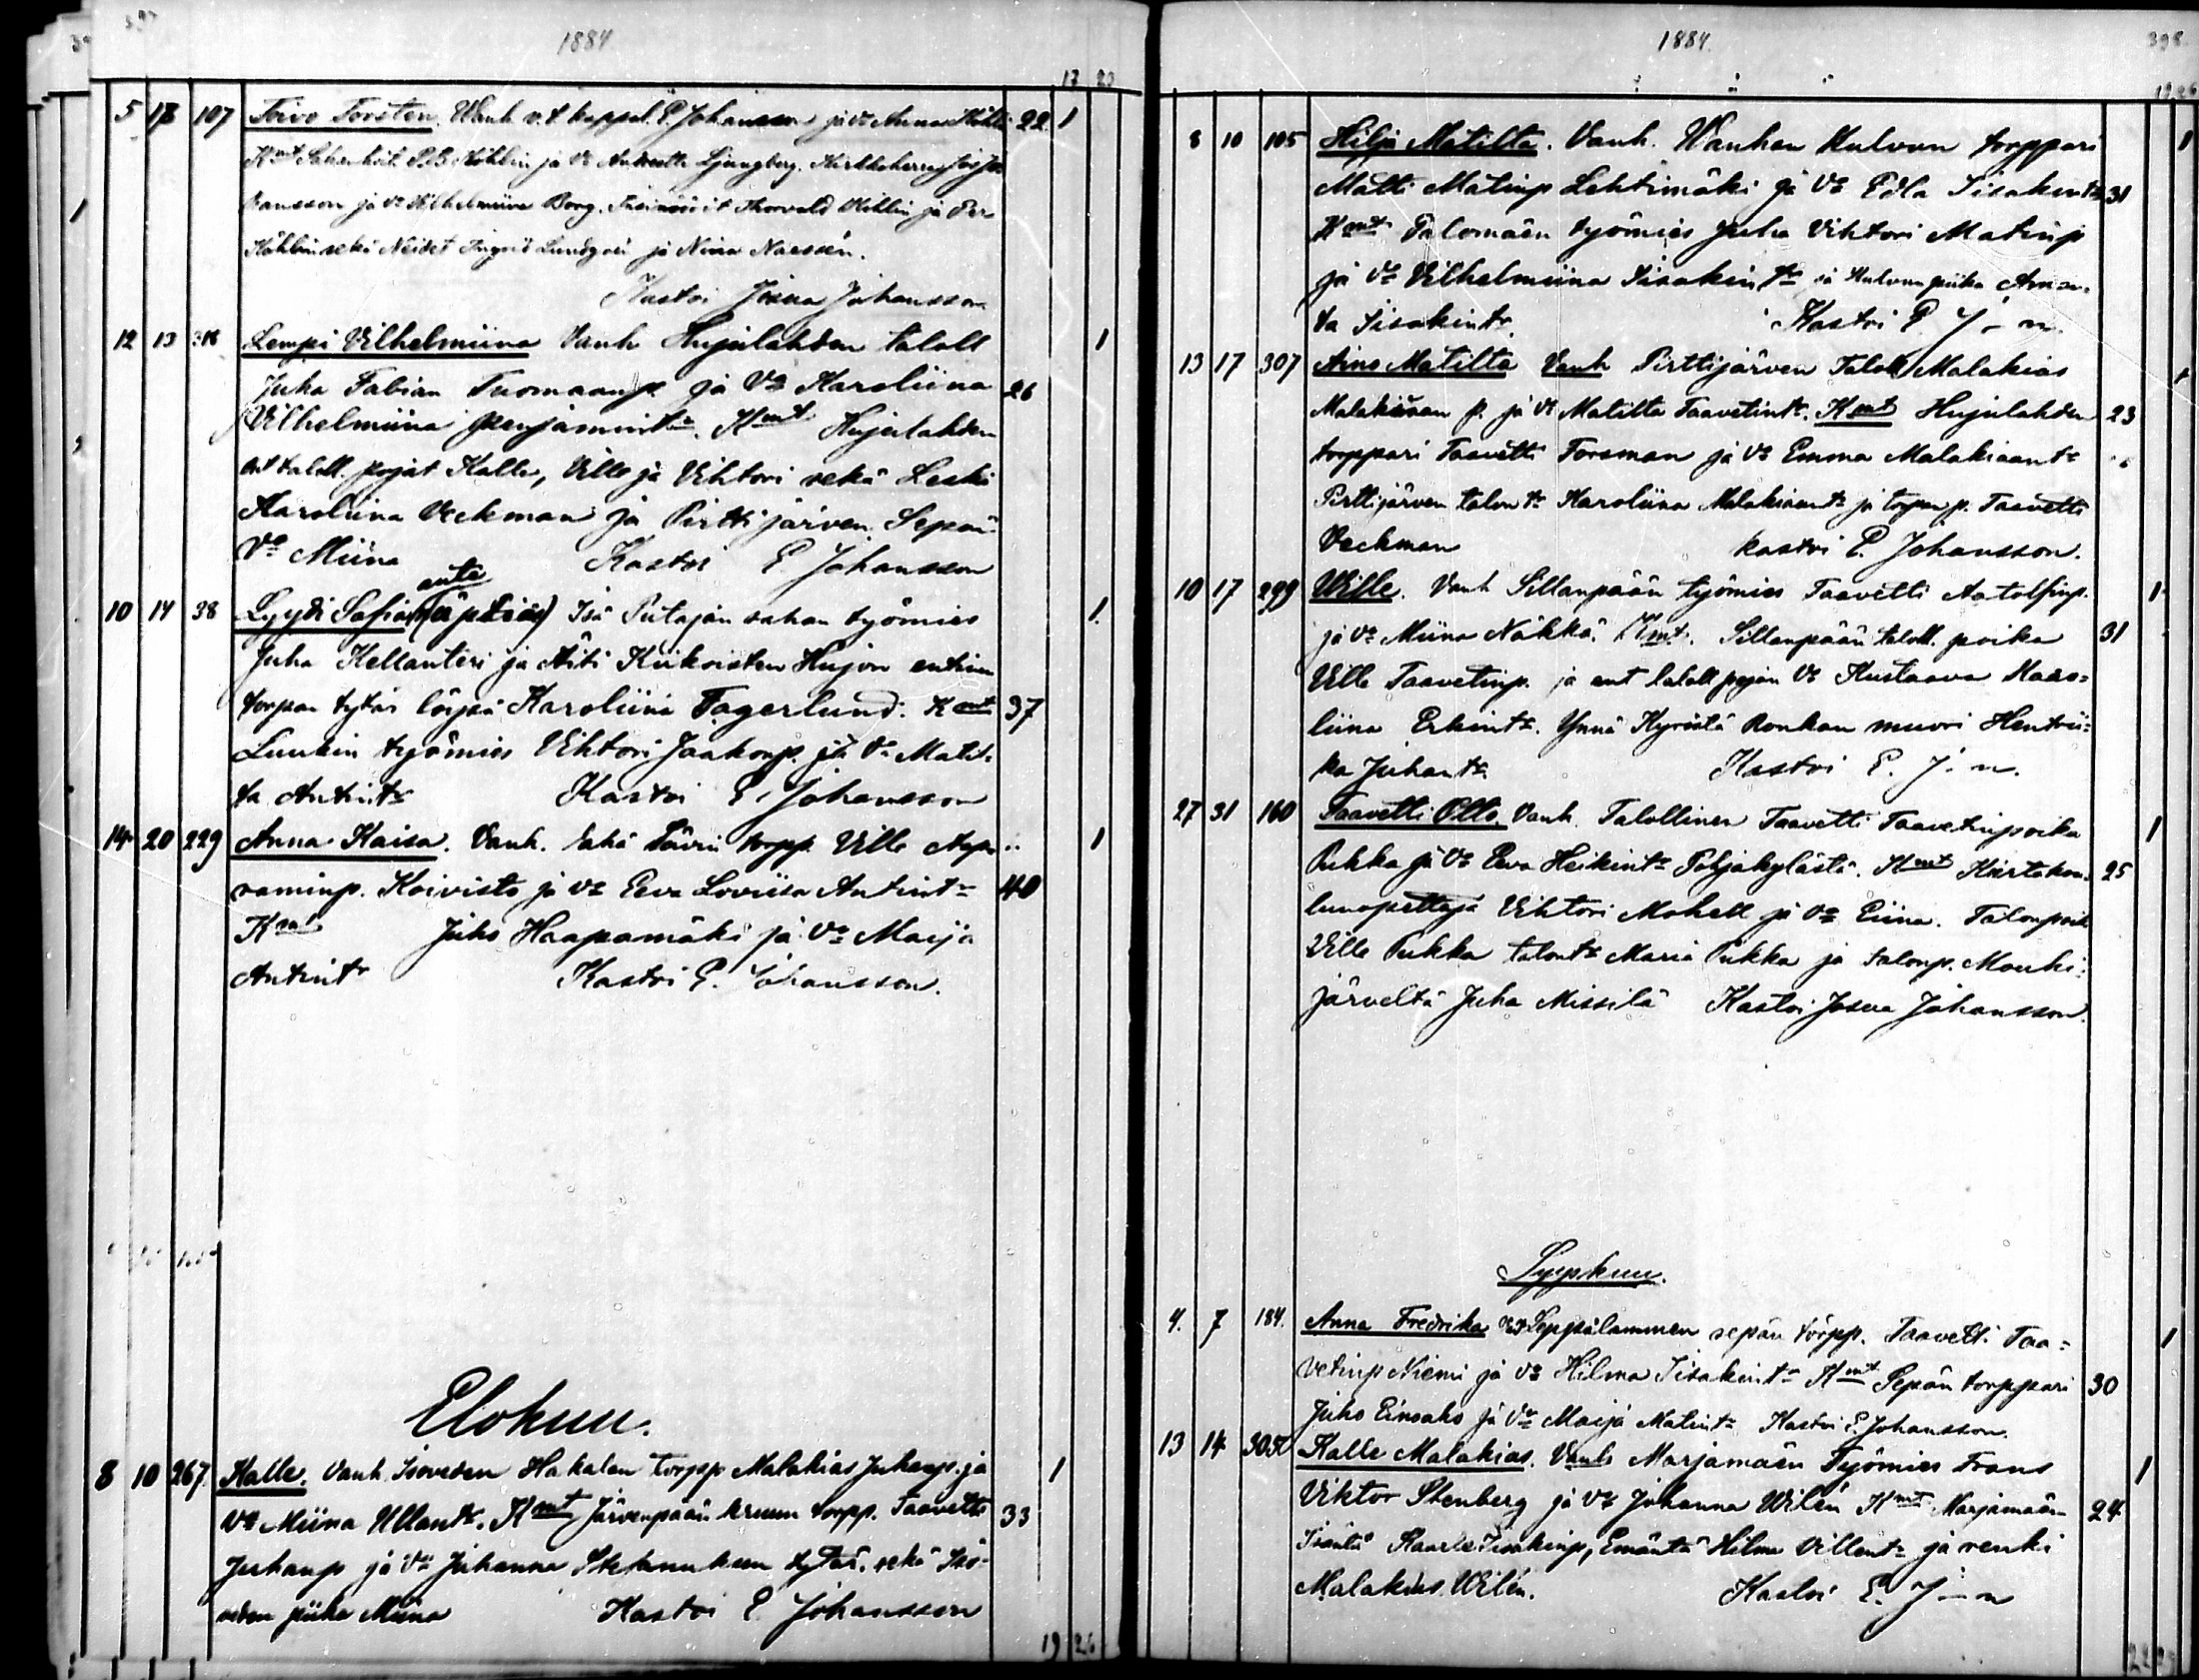 1884
17 20
5 13 107 Toivo Torsten. Vanh. v.t. kappal. E. Johansson ja Vo Anna 22 1
Kmt ja Vo Ljungberg. Kirkkoherra
ja Vo Vilhelmiina Borg. Thorvald ja
sekä Neidet Ingrid Lundgren ja Nina Naessén.
Kastoi Josua Johansson
12 13 Lempi Vilhelmiina Vanh Hujulahden taloll 1
Juha Fabian Tuomaanp. ja Vo Karoliina 26
Vilhelmiina Penjamint. Kmt Hujulahden
ent taloll. pojat Kalle, Ville ja Vihtori sekä Leski
Karoliina Veckman ja Pirttijärven Sepän
Vo Miina Kastoi E Johansson
auta
10 14 38 Lyydi Sofia (äpäräs) Isä Putajan sahan työmies 1
Juha Kellanteri ja Äiti Kiikoisten Hujon entinen
torpan tytär löysä Karoliina Fagerlund. Kmt 37
Luukin työmies Vihtori Jaakonp. ja Vo Matil-
ta Antint. Kastoi E. Johansson
14 20 229 Anna Kaisa. Vanh. torpp. Ville 1
raminp. Koivisto ja Vo Eeva Loviisa Antint. 40
Kmt Juho Haapamäki ja Vo Maija
Antint. Kastoi E. Johansson.
Elokuu.
8 10 267 Kalle. Vanh. Isoveden Hakalan torpp Malakias Juhanp. ja 1
Vo Miina Kmt Järvenpään torpp. Taavetti 33
Juhanp ja Vo Juhanna tytär. sekä Iso-
veden piika Miina Kastoi E. Johansson
19 26
1884. 398
19 26
8 10 105 Hilja Matilta. Vanh. Wanhan Kulvun torppari 1
Matti Matinp Lehtimäki ja Vo Edla Iisakint. 31
Kmt Palomäen työmies Juha Vihtori Matinp
ja Vo Vilhelmiina Iisakint. ja Kulvun piika Aman-
ta Iisakint. Kastoi E. J-n.
13 17 307 Aino Matilta Vanh Pirttijärven Taloll Malakias 1
Malakiaan p. ja Vo Matilta Taavetint. Kmt Hujulahden 23
torppari Taavetti Forsman ja Vo Emma Malakiaant.
Pirttijärven talont. Karoliina Malakiaant. ja torpan p. Taavetti
Veckman kastoi E. Johansson.
10 17 299 Wille. Vanh Sillanpään työmies Taavetti Aatolfinp. 1
ja Vo Miina Näkkä. Kmt. Sillanpään taloll. poika 31
Ville Taavetinp. ja ent taloll pojan Vo Kustaava Karo-
liina Erkint. Ynnä Kyröstä Ronkan muori Hentrii-
ka Juhant. Kastoi E. J-n.
27 31 160 Taavetti Otto. Vanh. Talollinen Taavetti Taavetinpoika 1
Pukka ja Vo Eeva Heikint. Pohjakylästä. Kmt Kiertokou- 25
lunopettaja Vihtori Mohell ja Vo Eiina. Talonpoik
Ville Pukka talont. Maria Pukka ja talonp. Mouhi-
järveltä Juha Missilä Kastoi Josua Johansson.
Syyskuu.
4. 7 184. Anna Fredrika Vanh Leppälammen sepän torpp. Taavetti Taa- 1
vetinp Niemi ja Vo Hilma Iisakint. Kmt Sepän torppari 30
Juho Einoaho ja Vo Maija Matint. Kastoi E. Johansson.
13 14 Kalle Malakias. Vanh Marjamäen Työmies Frans 1
Viktor Stenberg ja Vo Johanna Wilén Kmt Marjamäen 24
Isäntä Kaarle Iisakinp, Emäntä Hilma Villent. ja renki
Malakias Wilén. Kastoi E. J-n